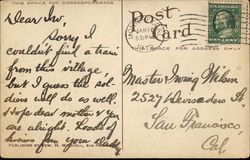 THIS SPACE FOR CORRESPONDENCE
Dear Irv,
Sorry I
couldn't find a train
from this village,
but I guess the sol-
diers will do as well.
Hope dear mother & you
are alright. Loads of
kisses from your daddy
Post
Card
THIS SPACE FOR ADDRESS ONLY
Master Irving
2527
San Francisco
Cal.